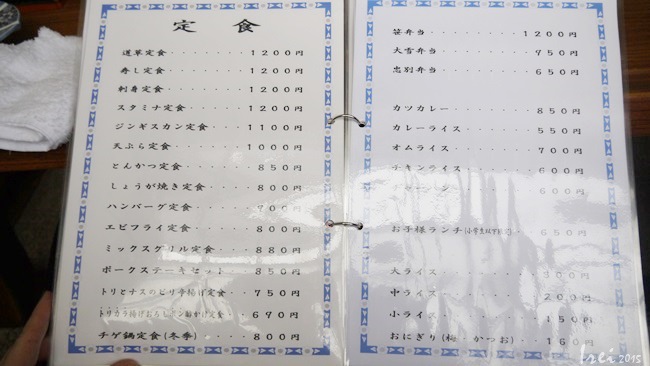 定食
道草定食・・・・・・・・1200円
寿し定食・・・・・・・・1200円
刺身定食・・・・・・・・1200円
スタミナ定食・・・・・・1200円
ジンギスカン定食・・・・1100円
天ぷら定食・・・・・・・1000円
とんかつ定食・・・・・・850円
しょうが焼き定食・・・・800円
ハンバーグ定食・・・・・700円
エビフライ定食・・・・・800円
ミックスグリル定食・・・880円
ポークステーキセット・・850円
トリとナスのピリ辛揚げ定食・・750円
トリカラ揚げおろしポン酢かけ定食・・690円
チゲ鍋定食(冬季)・・・800円
笹弁当・・・・・・・・・1200円
大雪弁当・・・・・・・・750円
忠別弁当・・・・・・・・650円
カツカレー・・・・・・・850円
カレーライス・・・・・・550円
オムライス・・・・・・・700円
チキンライス・・・・・・600円
600円
お子様ランチ ・・650円
大ライス・・・・・・・・300円
中ライス・・・・・・・・200円
小ライス・・・・・・・・150円
おにぎり(梅・かつお)・・160円
2015